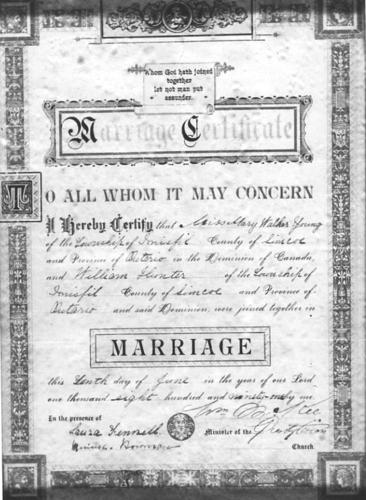 Whom God hath joined
together
let not man put
assunder.
Marriage Certificate
TO ALL WHOM IT MAY CONCERN
I Hereby Certify that Miss Mary Walker Young
of the Township of Innisfil County of Simcoe
and Province of Ontario in the Dominion of Canada,
and William Hunter of the Township of
Innisfil County of Simcoe and Province of
Ontario and said Dominion, were joined together in
MARRIAGE
this Tenth day of June in the year of our Lord,
one thousand eight hundred and ninety
In the presence of Wm
Laura Minister of the
Church.